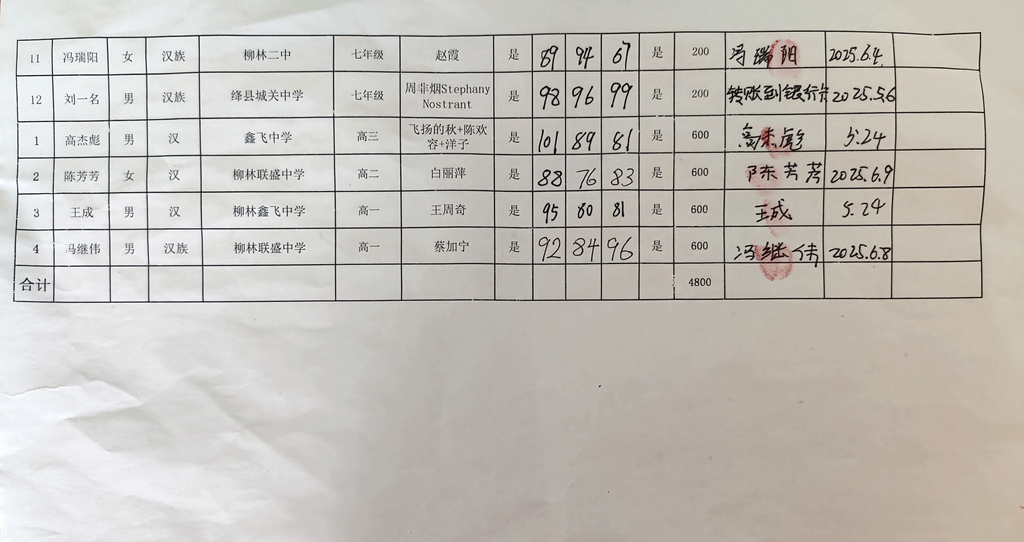 11 冯瑞阳 女 汉族 柳林二中 七年级 赵霞 是 89 94 67 是 200 冯瑞阳 2025.6.4.
12 刘一名 男 汉族 绛县城关中学 七年级 周非烟Stephany Nostrant 是 98 96 99 是 200 转账到银行卡 2025.5.6
1 高杰彪 男 汉 鑫飞中学 高三 飞扬的秋+陈欢容+洋子 是 101 89 81 是 600 高杰彪 5.24
2 陈芳芳 女 汉 柳林联盛中学 高二 白丽萍 是 88 76 83 是 600 陈芳芳 2025.6.9
3 王成 男 汉 柳林鑫飞中学 高一 王周奇 是 95 80 81 是 600 王成 5.24
4 冯继伟 男 汉族 柳林联盛中学 高一 蔡加宁 是 92 84 96 是 600 冯继伟 2025.6.8
合计 4800